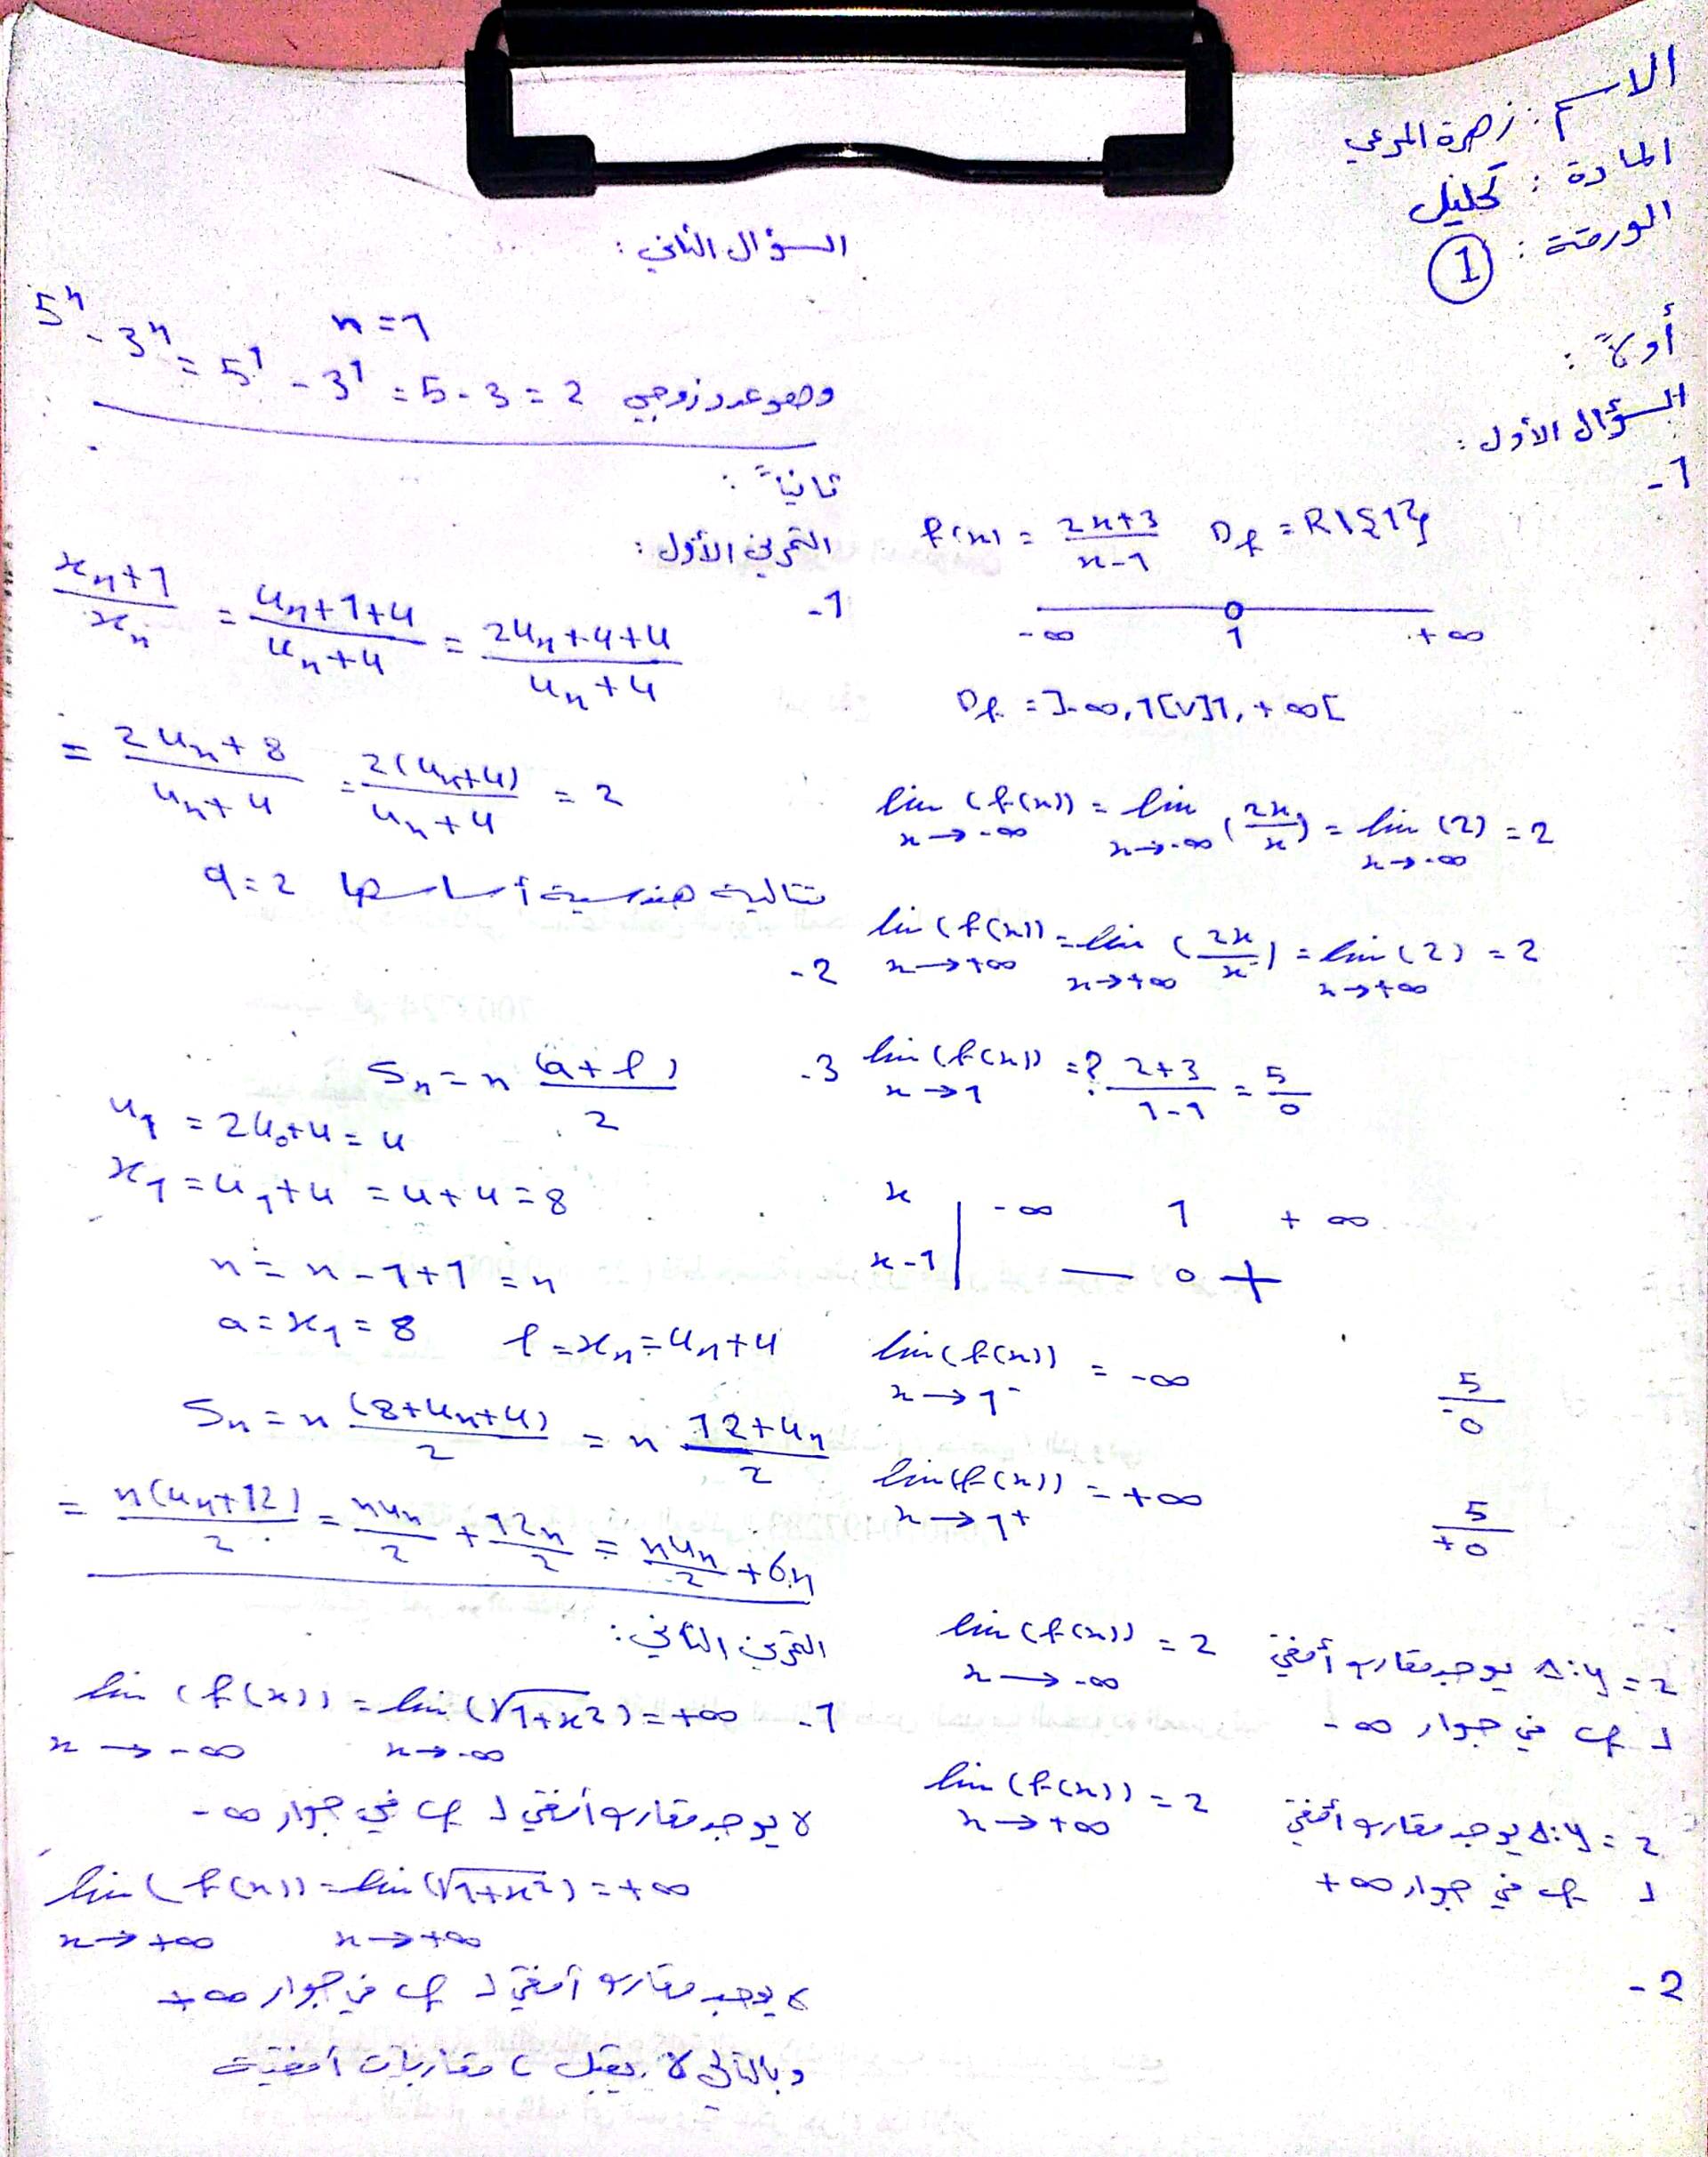 الاسم : زهرة المرعي
المادة : تحليل
الورقة : 1
أولاً :
السؤال الأول :
-1
f(x) = \frac{2x+3}{x-1} D_f = R\{1}
-∞ 1 +∞
D_f = ]-∞, 1[∪]1, +∞[
lim_{x→-∞} (f(x)) = lim_{x→-∞} (\frac{2x}{x}) = lim_{x→-∞} (2) = 2
lim_{x→+∞} (f(x)) = lim_{x→+∞} (\frac{2x}{x}) = lim_{x→+∞} (2) = 2
lim_{x→1} (f(x)) =? \frac{2+3}{1-1} = \frac{5}{0}
x | -∞ 1 +∞
x-1 | — 0 +
lim_{x→1-} (f(x)) = -∞ \frac{5}{-0}
lim_{x→1+} (f(x)) = +∞ \frac{5}{+0}
lim_{x→-∞} (f(x)) = 2 يوجد مقارب أفقي Δ:y = 2
لـ C_f في جوار -∞
lim_{x→+∞} (f(x)) = 2 يوجد مقارب أفقي Δ:y = 2
لـ C_f في جوار +∞
-2
السؤال الثاني :
n=1
5^n - 3^n = 5^1 - 3^1 = 5-3 = 2 وهو عدد زوجي
ثانياً :
التمرين الأول :
-1
\frac{x_n+1}{x_n} = \frac{u_n+1+4}{u_n+4} = \frac{2u_n+4+4}{u_n+4}
= \frac{2u_n+8}{u_n+4} = \frac{2(u_n+4)}{u_n+4} = 2
متتالية هندسية أساسها q=2
-2
-3
S_n = n \frac{(a+l)}{2}
u_1 = 2u_0+4 = 4
x_1 = u_1+4 = 4+4 = 8
n = n-1+1 = n
a = x_1 = 8 l = x_n = u_n+4
S_n = n \frac{(8+u_n+4)}{2} = n \frac{12+u_n}{2}
= \frac{n(u_n+12)}{2} = \frac{nu_n}{2} + \frac{12n}{2} = \frac{nu_n}{2} + 6n
التمرين الثاني :
-1
lim_{x→-∞} (f(x)) = lim_{x→-∞} (√(1+x^2)) = +∞
لا يوجد مقارب أفقي لـ C_f في جوار -∞
lim_{x→+∞} (f(x)) = lim_{x→+∞} (√(1+x^2)) = +∞
لا يوجد مقارب أفقي لـ C_f في جوار +∞
وبالتالي لا يقبل C مقاربات أفقية